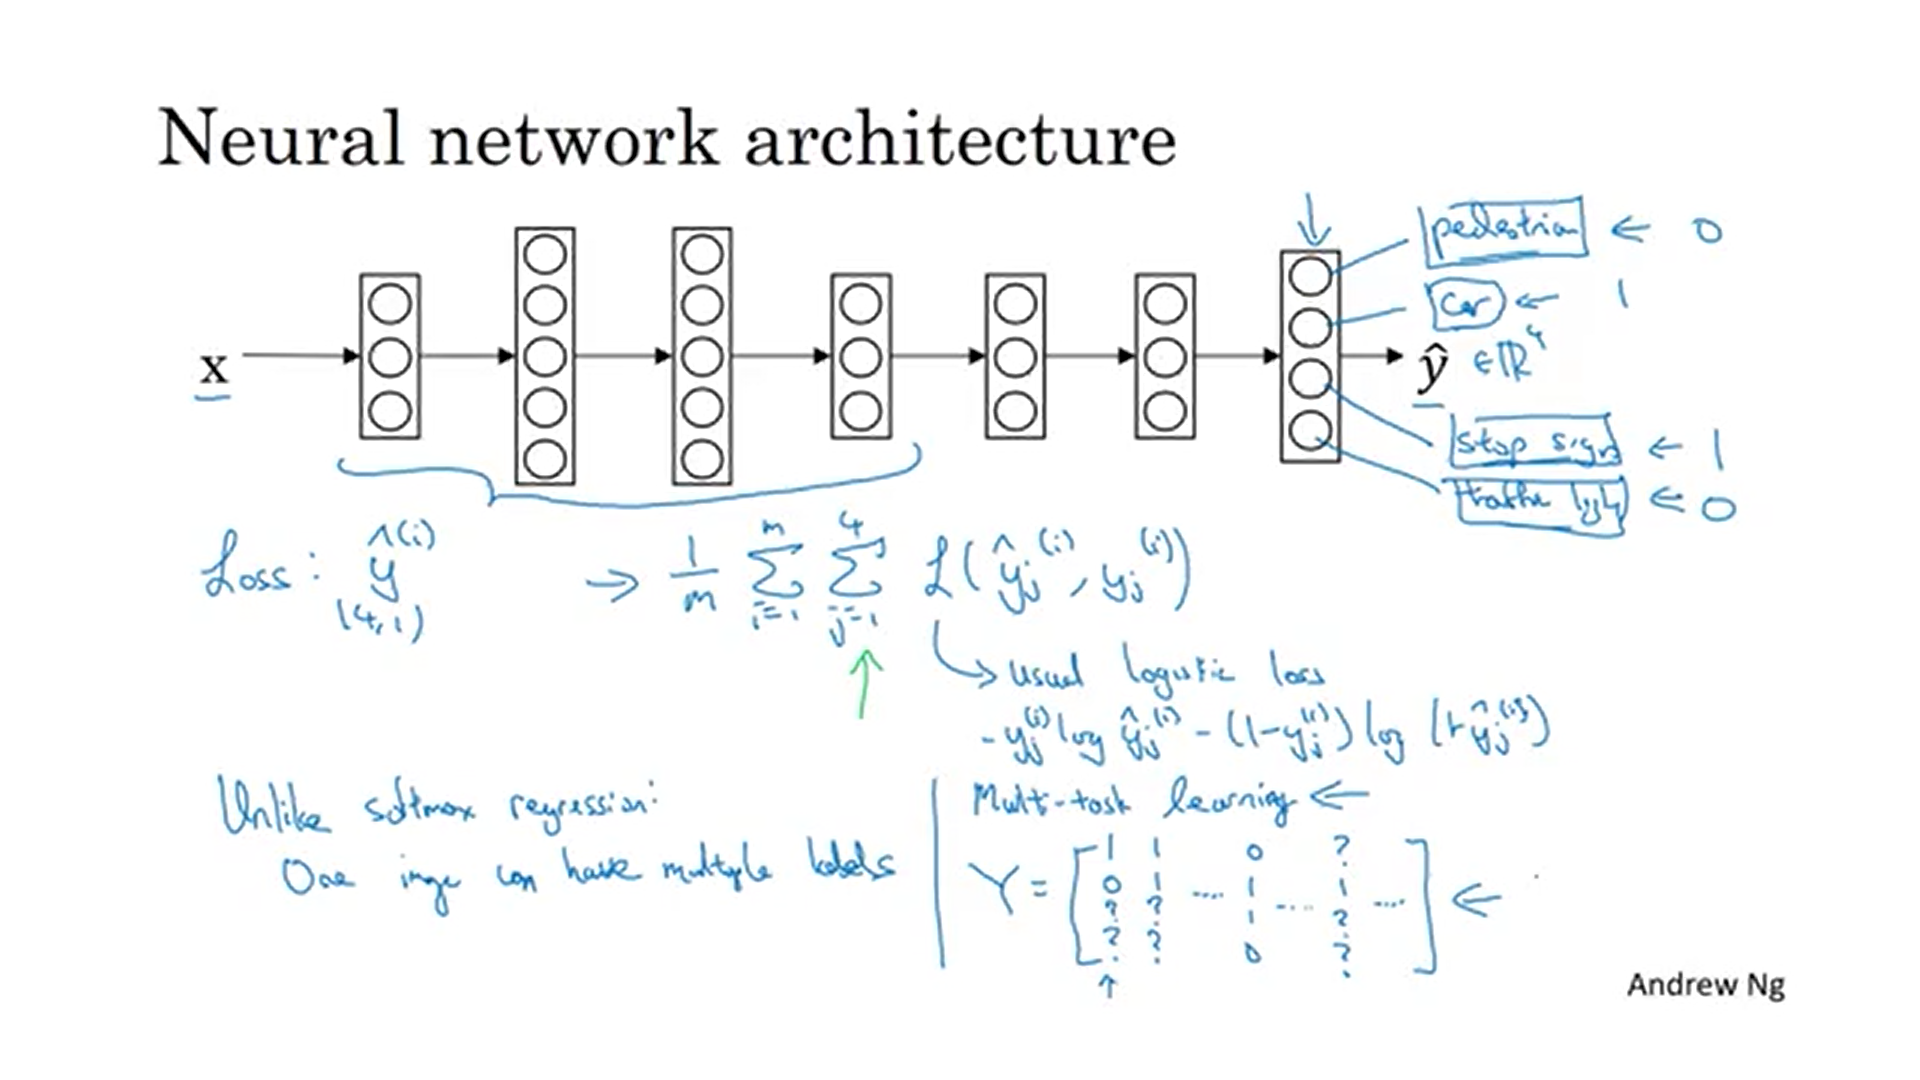 Neural network architecture
pedestrian ← 0
car ← 1
x
ŷ ∈ ℝ⁴
stop sign ← 1
traffic light ← 0
Loss: ŷ^(i) → 1/m Σ_{i=1}^{m} Σ_{j=1}^{4} ℒ(ŷ_j^(i), y_j^(i))
(4,1)
↳ usual logistic loss
- y_j^(i) log ŷ_j^(i) - (1-y_j^(i)) log (1-ŷ_j^(i))
Unlike softmax regression:
One image can have multiple labels
Multi-task learning ←
Y = [
1 1 0 ?
0 1 .... 1 1
? ? .... 1 ? ....
? ? 0 ?
] ←
Andrew Ng